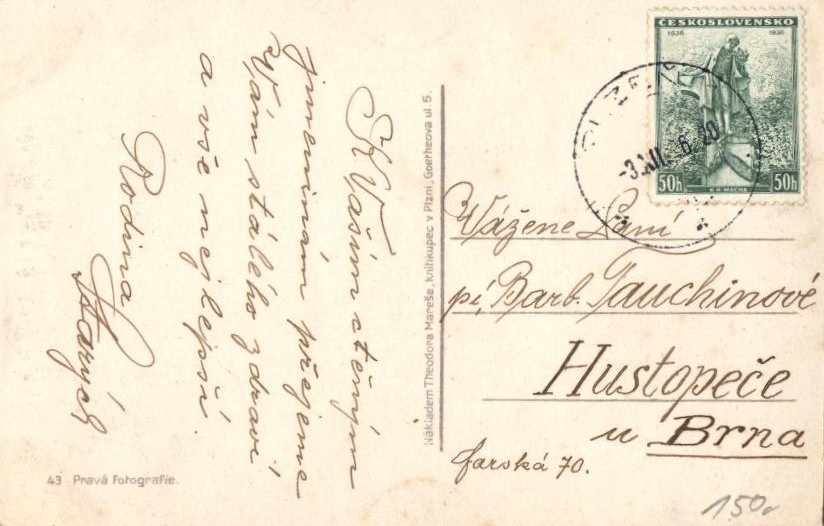 K Vašim ctěným
jmeninám přejeme
Vám stálého zdraví
a vše nejlepší.
Rodina
Starých
43 Pravá Fotografie.
Nákladem Theodora Mareše, knihkupec v Plzni, Goetheova ul. 5.
ČESKOSLOVENSKO
1836 1936
50h 50h
K. H. MÁCHA
PLZEŇ
-3.XII. 6 20
Vážené Paní
pí, Barb. Tauchinové
Hustopeče
u Brna
farská 70.
150,-